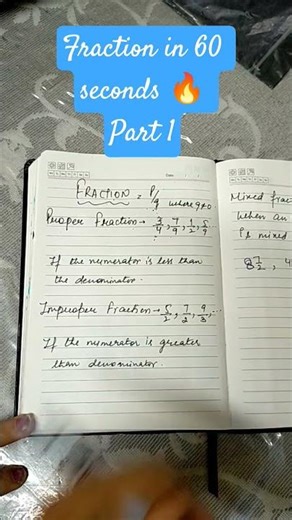 Fraction in 60
seconds 🔥
Part 1
FRACTION = P/q where q≠0
Proper fraction → 3/4, 7/9, 1/2, 5/9 ...
If the numerator is less than
the denominator.
Improper fraction → 5/2, 7/2, 9/3, ...
If the numerator is greater
than denominator.
Mixed frac
When an
is mixed
8 7/2, 4